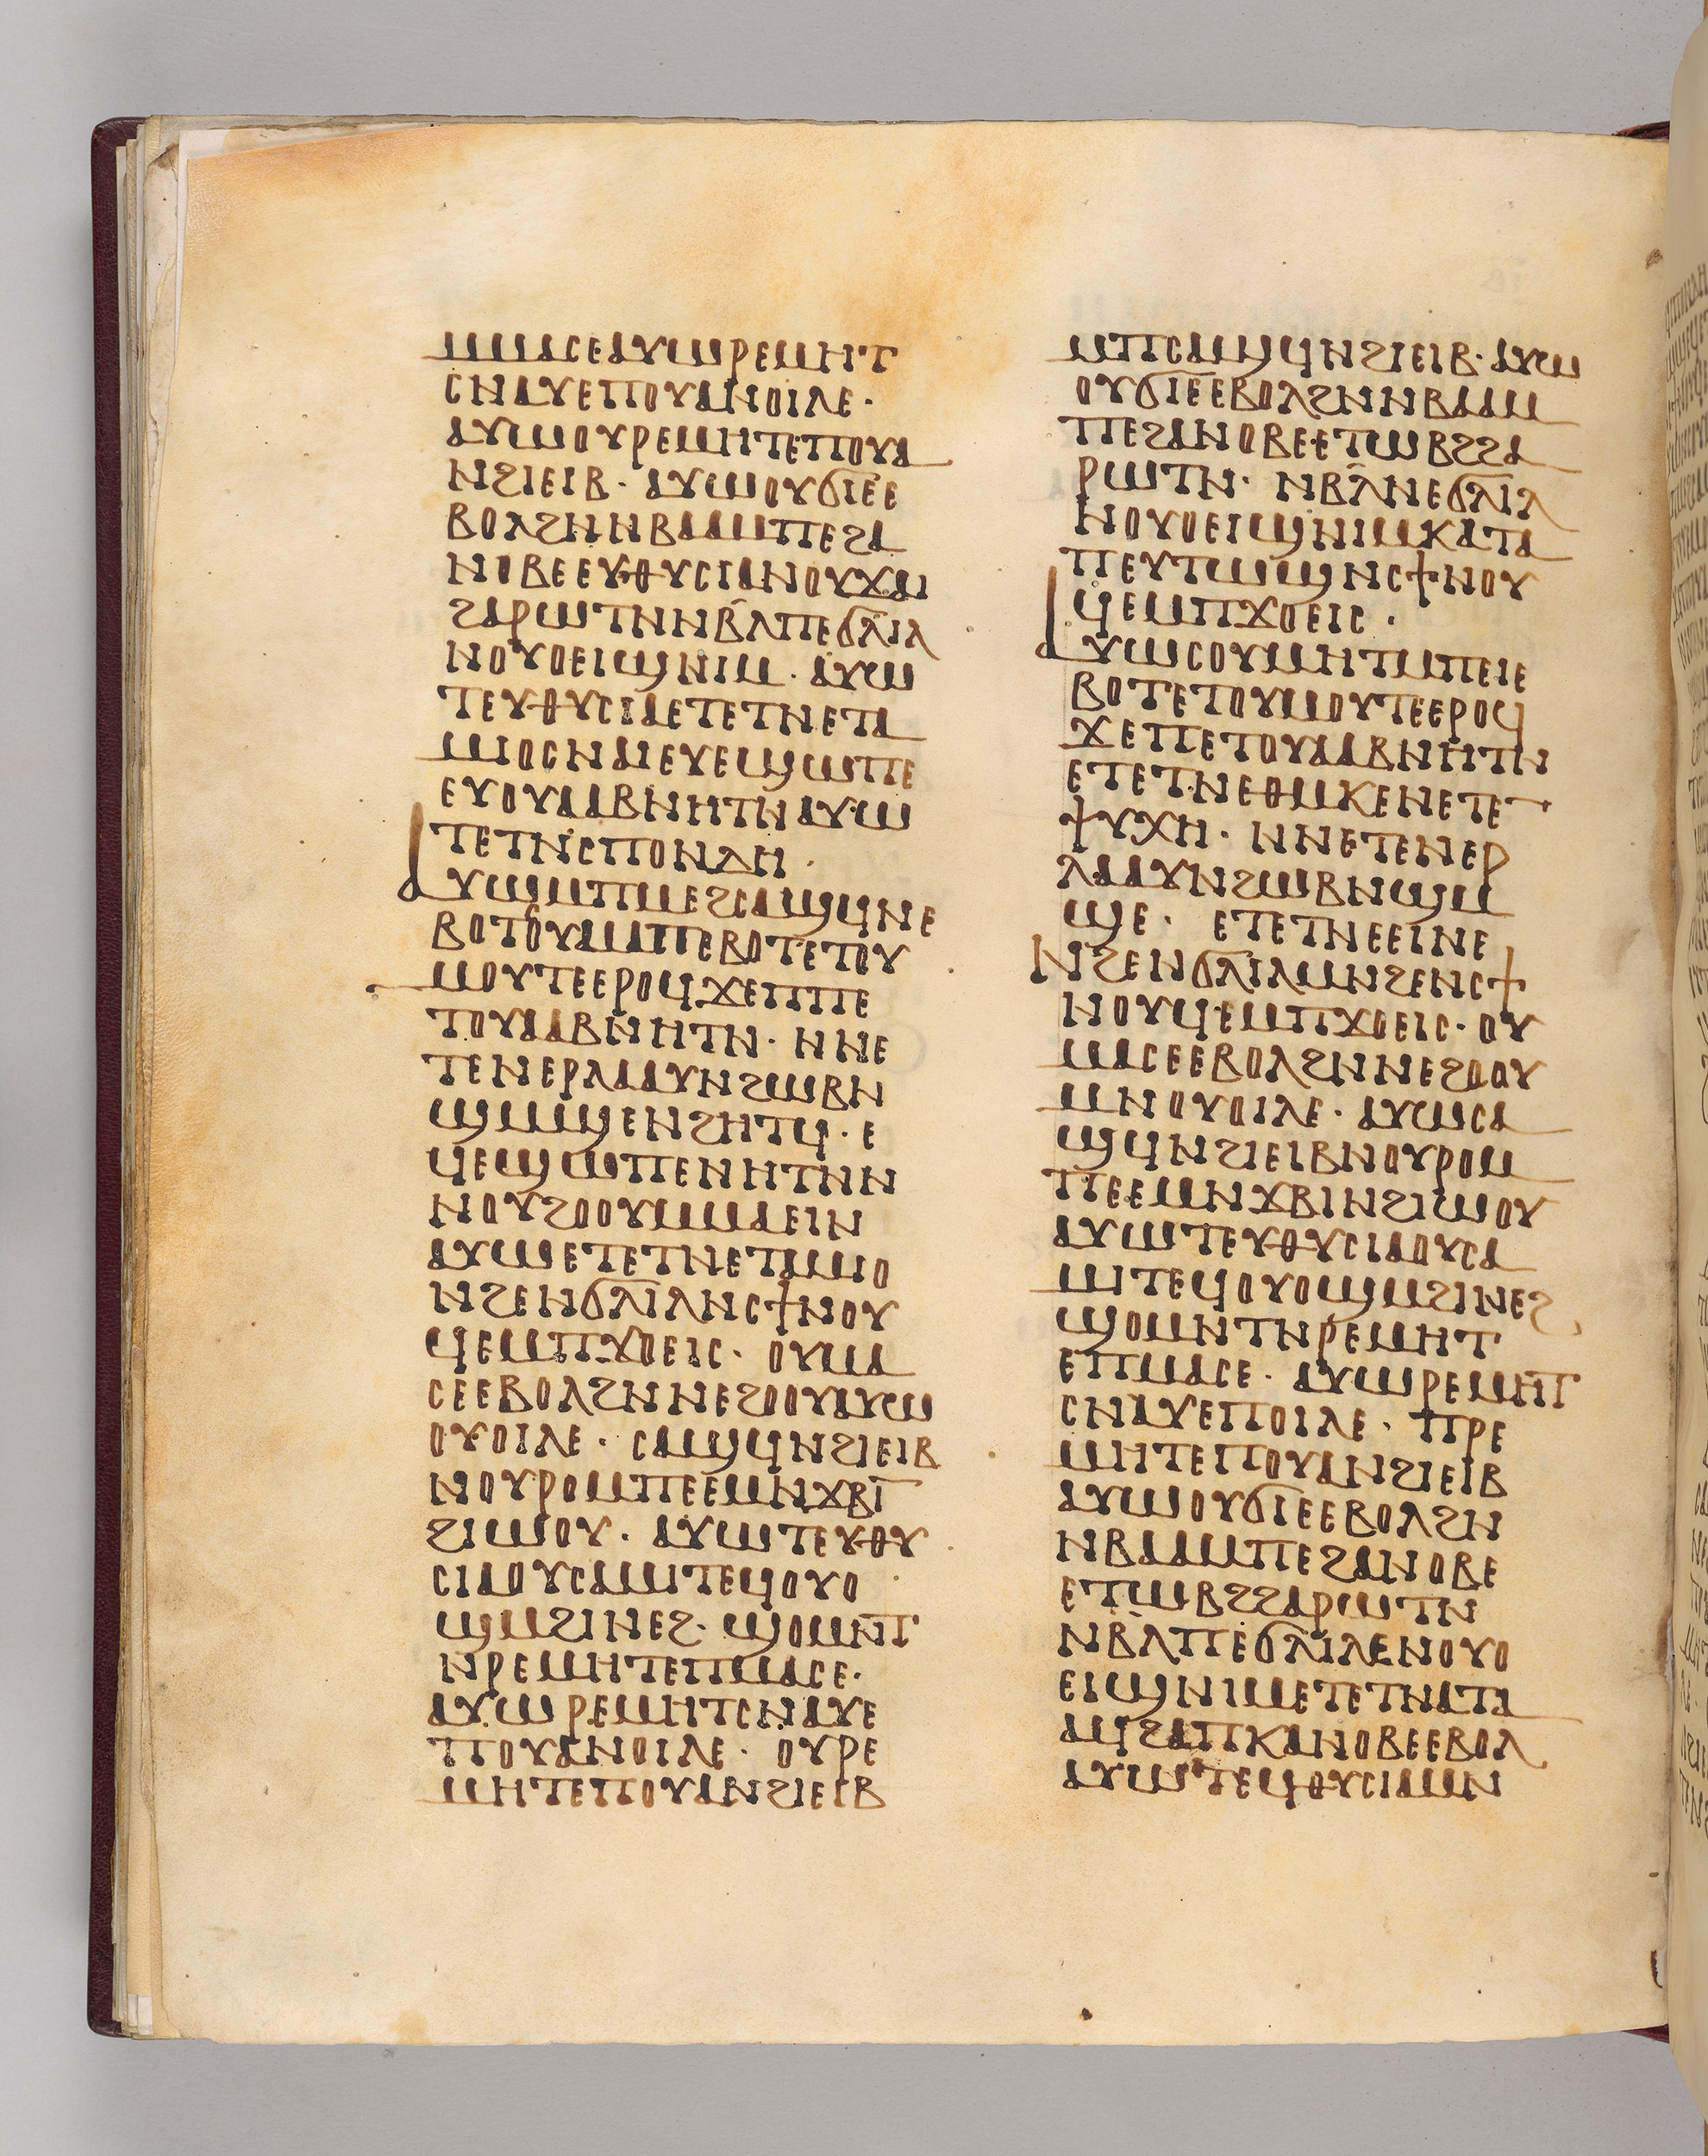 ⲘⲘⲀⲤⲈⲀⲨⲰⲢⲈⲘⲎⲦ
ⲤⲚⲀⲨⲈⲠⲞⲨⲀⲚⲞⲒⲖⲈ·
ⲀⲨⲰⲞⲨⲢⲈⲘⲎⲦⲈⲠⲞⲨⲀ
ⲚϨⲒⲈⲒⲂ· ⲀⲨⲰⲞⲨϬⲒⲈⲈ
ⲂⲞⲖϨⲚⲚⲂⲀⲀⲘⲠⲈϨⲀ
ⲚⲞⲂⲈⲈⲨⲐⲨⲤⲒⲀⲚⲞⲨⲬⲀⲒ
ϨⲀⲢⲰⲦⲚⲚⲂⲖⲠⲈϬⲖⲒⲖ
ⲚⲞⲨⲞⲈⲒϢⲚⲒⲘ· ⲀⲨⲰ
ⲦⲈⲨⲐⲨⲤⲒⲀⲈⲦⲈⲦⲚⲈⲦⲀ
ⲘⲒⲞⲤⲚⲀⲒⲈⲨⲈϢⲰⲠⲈ
ⲈⲨⲞⲨⲀⲀⲂⲚⲎⲦⲚⲀⲨⲰ
ⲦⲈⲦⲚⲤⲠⲞⲚⲆⲎ·
ⲀⲨⲰⲘⲠⲘⲈϨⲤⲀϢϤⲚⲈ
ⲂⲞⲦⲤⲞⲨⲀⲘⲠⲈⲂⲞⲦⲈⲦⲞⲨ
ⲘⲞⲨⲦⲈⲈⲢⲞϤϪⲈⲠⲠⲈ
ⲦⲞⲨⲀⲀⲂⲚⲎⲦⲚ· ⲚⲚⲈ
ⲦⲈⲚⲈⲢⲖⲀⲀⲨⲚϨⲰⲂⲚ
ϢⲘϢⲈⲚϨⲎⲦϤ· Ⲉ
ϤⲈϢⲰⲠⲈⲚⲎⲦⲚⲚ
ⲚⲞⲨϨⲞⲞⲨⲘⲘⲀⲈⲒⲚ
ⲀⲨⲰⲈⲦⲈⲦⲚⲈⲦⲀⲘⲒⲞ
ⲚϨⲈⲚϬⲖⲒⲖⲚⲤϮⲚⲞⲨ
ϤⲈⲘⲠϪⲞⲈⲒⲤ· ⲞⲨⲘⲀ
ⲤⲈⲈⲂⲞⲖϨⲚⲚⲈϨⲞⲞⲨⲀⲨⲰ
ⲞⲨⲞⲒⲖⲈ· ⲤⲀϢϤⲚϨⲒⲈⲒⲂ
ⲚⲞⲨⲢⲞⲘⲠⲈⲈⲘⲚϪⲂⲒ
ϨⲒⲰⲞⲨ· ⲀⲨⲰⲦⲈⲨⲐⲨ
ⲤⲒⲀⲞⲨⲤⲀⲘⲒⲦⲈϤⲞⲨⲞ
ϢⲘϨⲒⲚⲈϨ· ϢⲞⲘⲚⲦ
ⲚⲢⲈⲘⲎⲦⲈⲠⲘⲀⲤⲈ·
ⲀⲨⲰⲢⲈⲘⲎⲦⲤⲚⲀⲨⲈ
ⲠⲞⲨⲀⲚⲞⲒⲖⲈ· ⲞⲨⲢⲈ
ⲘⲎⲦⲈⲠⲞⲨⲀⲚϨⲒⲈⲒⲂ
ⲘⲠⲤⲀϢϤⲚϨⲒⲈⲒⲂ· ⲀⲨⲰ
ⲞⲨϬⲒⲈⲈⲂⲞⲖϨⲚⲚⲂⲀⲀⲘ
ⲠⲈϨⲀⲚⲞⲂⲈⲈⲦⲰⲂϨϨⲀ
ⲢⲰⲦⲚ· ⲚⲂⲖⲚⲈϬⲖⲒⲖ
ⲚⲞⲨⲞⲈⲒϢⲚⲒⲘⲔⲀⲦⲀ
ⲠⲈⲨⲦⲰϢⲚⲤϮⲚⲞⲨ
ϤⲈⲘⲠϪⲞⲈⲒⲤ·
ⲀⲨⲰⲤⲞⲨⲘⲎⲦⲘⲠⲈⲒⲈ
ⲂⲞⲦⲈⲦⲞⲨⲘⲞⲨⲦⲈⲈⲢⲞϤ
ϪⲈⲠⲈⲦⲞⲨⲀⲀⲂⲚⲎⲦⲚ
ⲈⲦⲈⲦⲚⲈⲐⲘⲔⲈⲚⲈⲦⲈⲦ
ⲮⲨⲬⲎ· ⲚⲚⲈⲦⲈⲚⲈⲢ
ⲖⲀⲀⲨⲚϨⲰⲂⲚϢⲘ
ϢⲈ· ⲈⲦⲈⲦⲚⲈⲈⲒⲚⲈ
ⲚϨⲈⲚϬⲖⲒⲖⲘⲚϨⲈⲚⲤϮ
ⲚⲞⲨϤⲈⲘⲠϪⲞⲈⲒⲤ· ⲞⲨ
ⲘⲀⲤⲈⲈⲂⲞⲖϨⲚⲚⲈϨⲞⲞⲨ
ⲘⲚⲞⲨⲞⲒⲖⲈ· ⲀⲨⲰⲤⲀ
ϢϤⲚϨⲒⲈⲒⲂⲚⲞⲨⲢⲞⲘ
ⲠⲈⲈⲘⲚϪⲂⲒⲚϨⲒⲰⲞⲨ
ⲀⲨⲰⲦⲈⲨⲐⲨⲤⲒⲀⲞⲨⲤⲀ
ⲘⲒⲦⲈϤⲞⲨⲞϢⲘϨⲒⲚⲈϨ
ϢⲞⲘⲚⲦⲚⲢⲈⲘⲎⲦ
ⲈⲠⲘⲀⲤⲈ· ⲀⲨⲰⲢⲈⲘⲎⲦ
ⲤⲚⲀⲨⲈⲠⲞⲒⲖⲈ· ⲠⲢⲈ
ⲘⲎⲦⲈⲠⲞⲨⲀⲚϨⲒⲈⲒⲂ
ⲀⲨⲰⲞⲨϬⲒⲈⲈⲂⲞⲖϨⲚ
ⲚⲂⲀⲀⲘⲠⲈϨⲀⲚⲞⲂⲈ
ⲈⲦⲰⲂϨϨⲀⲢⲰⲦⲚ
ⲚⲂⲖⲠⲈϬⲖⲒⲖⲈⲚⲞⲨⲞ
ⲈⲒϢⲚⲒⲘⲈⲦⲈⲦⲚⲀⲦⲀ
ⲀϤϨⲀⲠⲔⲀⲚⲞⲂⲈⲈⲂⲞⲖ
ⲀⲨⲰⲦⲈϤⲐⲨⲤⲒⲀⲘⲚ